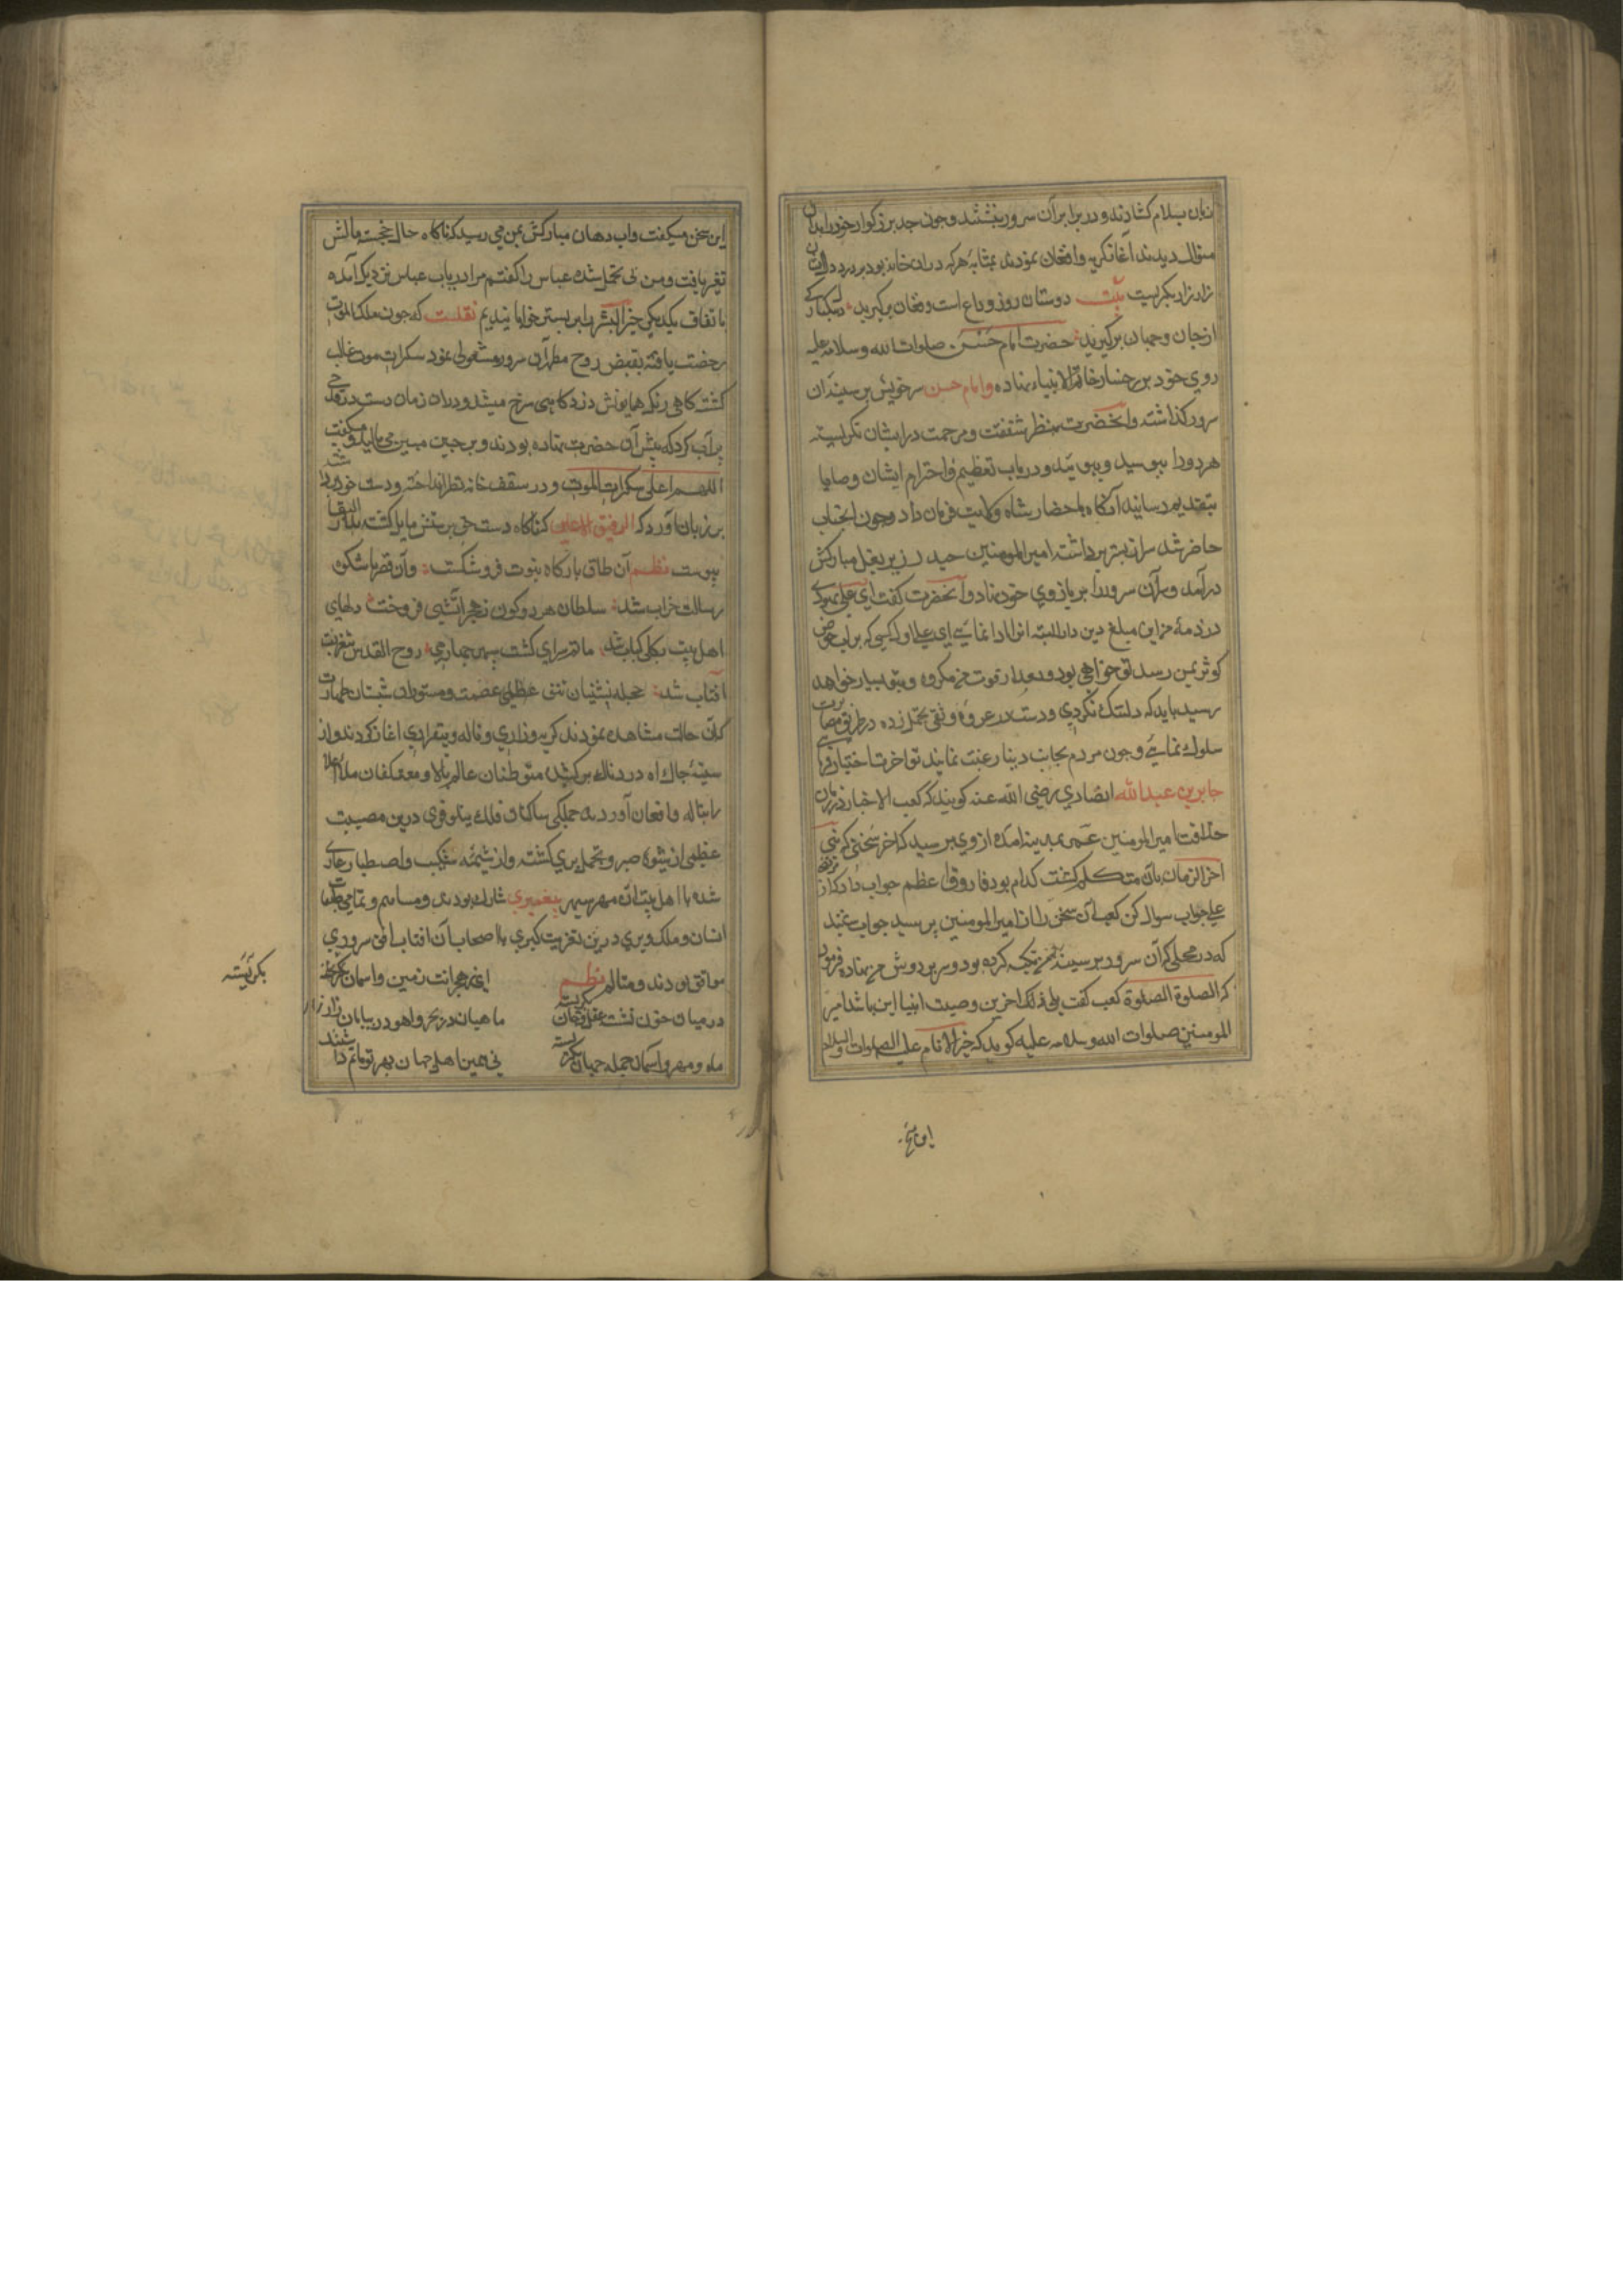 زبان بسلام کشادند و در برابر آن سرور بنشستند و چون جد بزرکوار خود را بدان
منوال دیدند آغاز کریه و افغان نمودند بمثابهٔ هرکه در ان خانه بود بر درد
زار زار بکریست بیت دوستان روز وداع است و فغان برکیرید
از جان و جهان برکیرید حضرت امام حسن صلوات الله و سلامه علیه
روی خود بر رخسار خاتم الانبیاء نهاده و امام حسین سر خویش بر سینهٔ آن
سرور کذاشت و آنحضرت بنظر شفقت و مرحمت در ایشان نکریسته
هر دو را ببوسید و ببویید و در باب تعظیم و احترام ایشان وصایا
بتقدیم رسانیده آنکاه باحضار شاه ولایت فرمان داد و چون انجناب
حاضر شد سر از بستر برداشته امیر المومنین حیدر زیر بغل مبارکش
درآمد و سر آن سرور را بر بازوی خود نهاد و آنحضرت کفت ای علی
در ذمهٔ من این مبلغ دین دارد البته انرا ادا نمائی ای علی اول کسی که بر لب حوض
کوثر بمن رسد تو خواهی بود و بعد از فوت من مکروه و بتو بسیار خواهد
رسید باید که دلتنک نکردی و دست در عروهٔ وثقی تحمل زده در طریق مصابرت
سلوک نمائی و چون مردم بجانب دنیا رغبت نمایند تو اخرت اختیار فرمای
جابر بن عبدالله انصاری رضی الله عنه کویند که کعب الاخبار در زمان
خلافت امیر المومنین عمر بمدینه امده از وی پرسید که اخر سخنی که نبی
اخر الزمان بآن متکلم کشت کدام بود فاروق اعظم جواب داد که از
علی جواب سوال کن کعب آن سخن را از امیر المومنین پرسید جواب
که در محلی که آن سرور بر سینهٔ من تکیه کرده بود و سر بر دوش من نهاده فرمود
که الصلوة الصلوة کعب کفت بلی اخرین وصیت انبیا این باشد امیر
المومنین صلوات الله و سلامه علیه کوید که خیر الانام علیه الصلوات والسلام
این سخن
این سخن میکفت و اب دهان مبارکش بمن می رسید که ناکاه حال خجسته مالش
تغیر یافت و من بی تحمل شده عباس را کفتم مرا دریاب عباس نزدیک آمده
باتفاق یکدیکر خیر البشر را بر بستر خوابانیدیم نقلست که چون ملک الموت
رخصت یافته بقبض روح مطهر آن سرور مشغولی نمود سکرات موت غالب
کشته کاهی رنک همایونش زرد کاهی سرخ میشد و در ان زمان دست در قدحی
پر آب کرد که پیش آن حضرت نهاده بودند و بر جبین مبین می مالید و میکفت
اللهم اعنی علی سکرات الموت و در سقف خانه نظر انداخته و دست خود را
بر زبان آورد که الرفیق الاعلی که ناکاه دست حق پرستش مایل کشت بدار البقا
پیوست نظم آن طاق بارکاه نبوت فرو شکست وآن قصر باشکوه
رسالت خراب شد سلطان هر دو کون ز هجر آتشی فروخت دلهای
اهل بیت بکلی کباب شد ماتم سرای کشت سپهر چهارمین روح القدس بتعزیت
آفتاب شد حجله نشینان تتق عظمی عصمت و مستوران شبستان طهارت
کان حالت مشاهده نمودند کریه و زاری و ناله و بیقراری اغاز کردند و از
سینهٔ چاک اه دردناک برکشیده متوطنان عالم بالا و معتکفان ملا اعلا
را بناله و افغان آوردند جملکی ساکنان فلک درین مصیبت
عظمی از شیوه صبر و تحمل بری کشته و از شیمهٔ شکیب و اصطبار عاری
شده با اهل بیت آن مهر سپهر پیغمبری شارک بودند و مساهم و تمامی طبقات
انسان و ملک و پری درین تعزیت کبری با اصحاب آن افتاب افق سروری
موافق بودند و متالم نظم ای ز هجرانت زمین و اسمان بکریسته
بکریسته
در میان خون نشسته عقل و جان بکریسته ماهیان در بحر و اهو در بیابان زار زار
ماه و مهر و اسمان جمله جهان بکریسته نی همین اهل جهان بهر تو ماتم داشتند